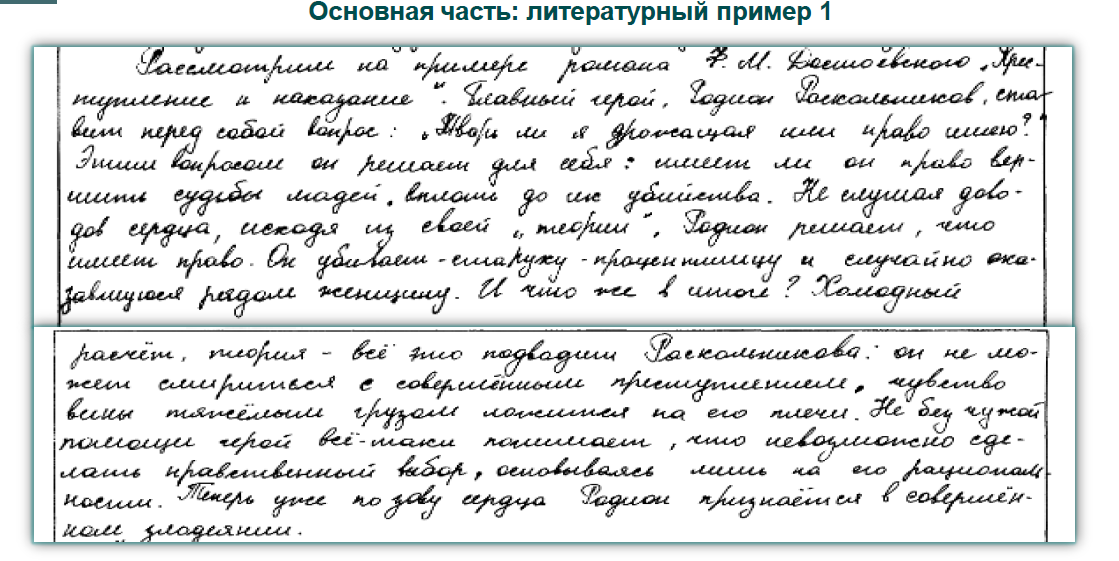 Основная часть: литературный пример 1
Рассмотрим на примере романа Ф. М. Достоевского „Прес-
тупление и наказание“. Главный герой, Родион Раскольников, ста-
вит перед собой вопрос: „Тварь ли я дрожащая или право имею?“
Этим вопросом он решает для себя: имеет ли он право вер-
шить судьбы людей, вплоть до их убийства. Не слушая дово-
дов сердца, исходя из своей „теории“, Родион решает, что
имеет право. Он убивает-старуху-процентщицу и случайно ока-
завшуюся рядом женщину. И что же в итоге? Холодный
расчёт, теория – всё это подводит Раскольникова: он не мо-
жет смириться с совершённым преступлением, чувство
вины тяжёлым грузом ложится на его плечи. Не без чужой
помощи герой всё-таки понимает, что невозможно сде-
лать нравственный выбор, основываясь лишь на его рациональ-
ности. Теперь уже по зову сердца Родион признаётся в совершён-
ном злодеянии.